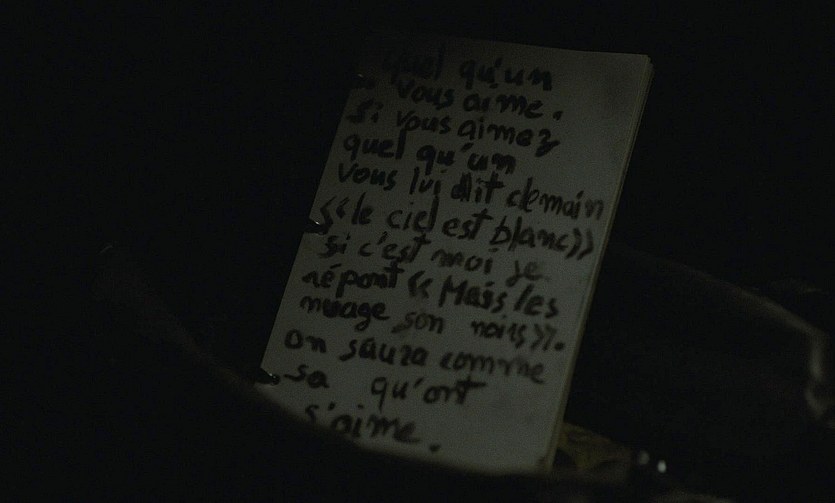 quel qu'un
vous aime.
Si vous aimez
quel qu'un
vous lui dit demain
«le ciel est blanc»
si c'est moi je
répont « Mais les
nuage son noirs».
on saura comme
sa qu'ont
s'aime.